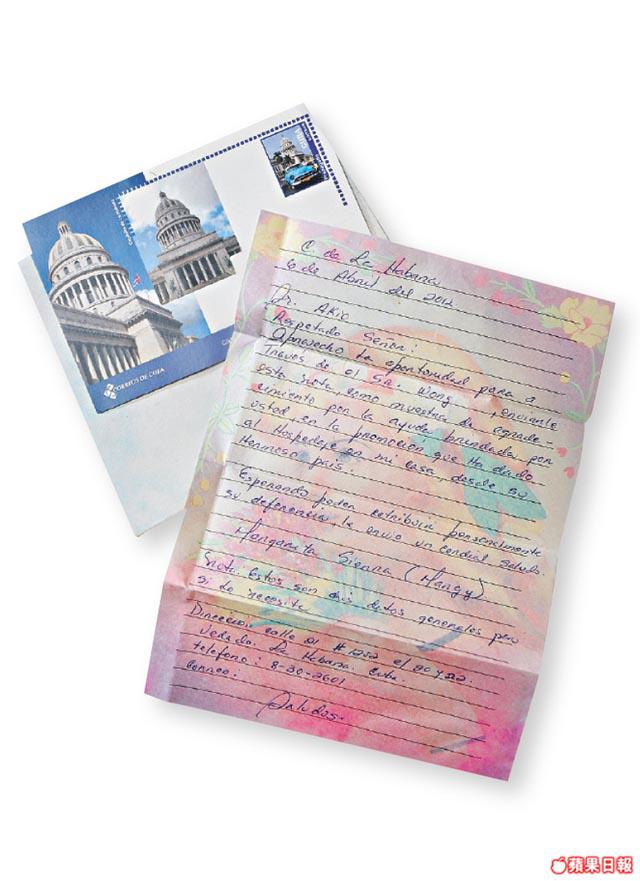 CUBA
CORREOS DE CUBA
C de La Habana
6 de Abril del 2012
Dr. Akio
Respetado Señor:
Aprovecho la oportunidad para a
Traves de el SR. Wong, enviarle
esta nota como muestra de agrade-
cimiento por la ayuda brindada por
usted en la promoción que ha dado
al Hospedaje en mi casa, desde su
Hermoso país.
Esperando poder retribuir personalmente
su deferencia, le envio un cordial saludo.
Margarita Sienra (Margy)
Nota: Estos son mis datos generales por
si lo necesita
Dirección: calle 21 # 1252 e/ 20 y 22.
Vedado. La Habana. Cuba.
telefono: 8-30-2601
Correo:
Saludos.
蘋果日報